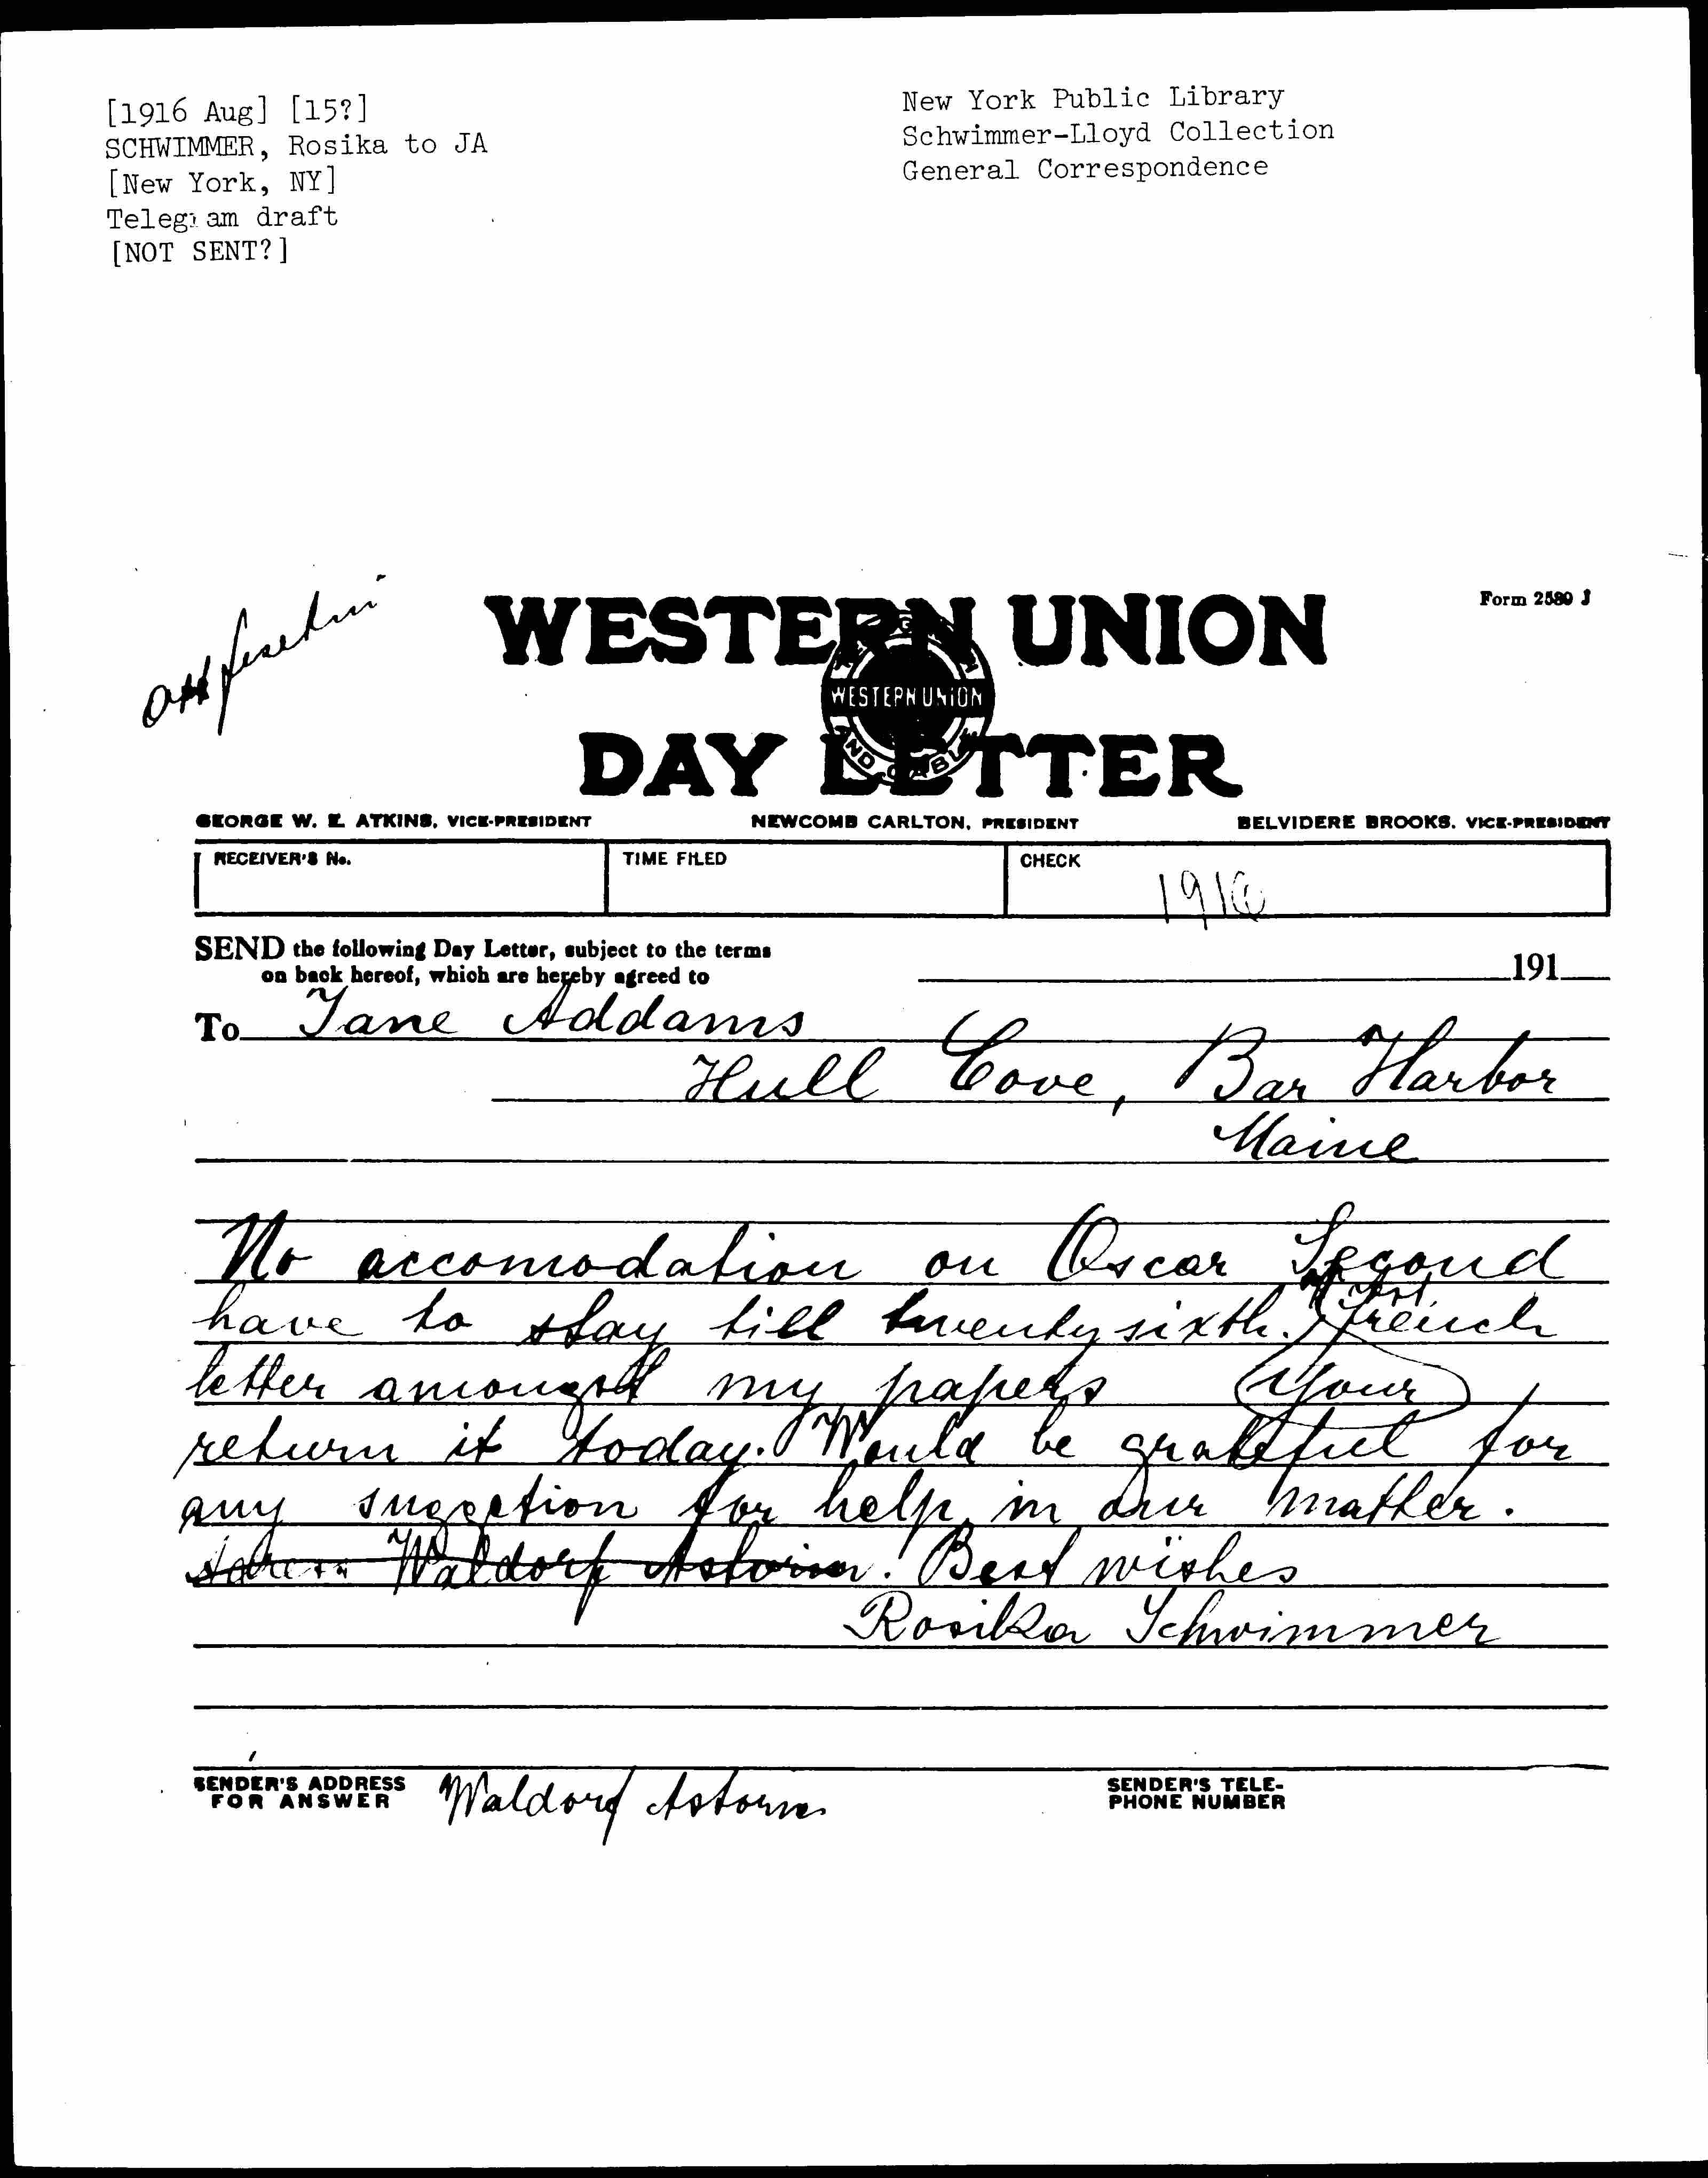 [1916 Aug] [15?]
SCHWIMMER, Rosika to JA
[New York, NY]
Telegram draft
[NOT SENT?]
New York Public Library
Schwimmer-Lloyd Collection
General Correspondence
Form 2589 J
WESTERN UNION
WESTERN UNION
AND CABLE
DAY LETTER
GEORGE W. E. ATKINS, VICE-PRESIDENT NEWCOMB CARLTON, PRESIDENT BELVIDERE BROOKS, VICE-PRESIDENT
RECEIVER'S No. TIME FILED CHECK
1916
SEND the following Day Letter, subject to the terms
on back hereof, which are hereby agreed to
191
To Jane Addams
Hull Cove, Bar Harbor
Maine
No accomodation on Oscar Second
have to stay till twenty sixth. French
letter amongst my papers
Your
return it today. Would be grateful for
any suggetion for help in our matter.
Adress Waldorf Astoria. Best wishes
Rosika Schwimmer
SENDER'S ADDRESS
FOR ANSWER
Waldorf Astoria
SENDER'S TELE-
PHONE NUMBER